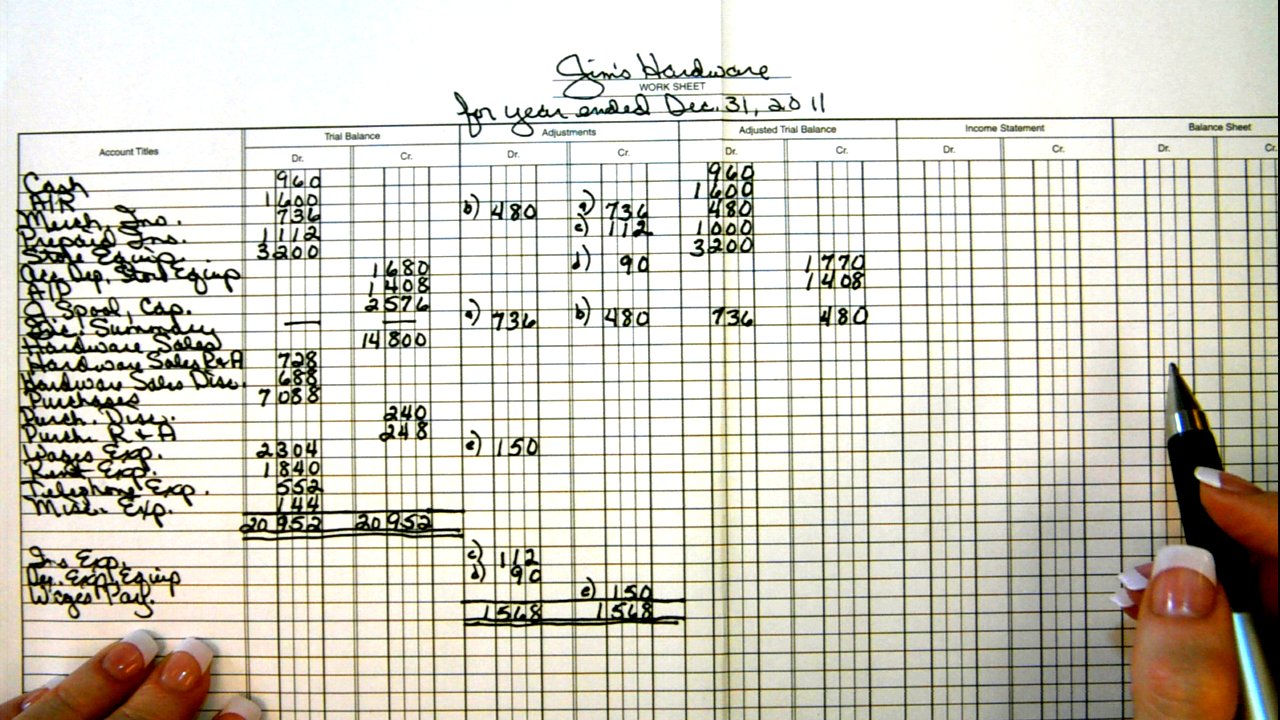 Jim's Hardware
WORK SHEET
for year ended Dec. 31, 2011
Trial Balance Adjustments Adjusted Trial Balance Income Statement Balance Sheet
Account Titles Dr. Cr. Dr. Cr. Dr. Cr. Dr. Cr. Dr. Cr.
Cash 960 960
A/R 1600 1600
Merch. Ins. 736 b) 480 a) 736 480
Prepaid Ins. 1112 c) 112 1000
Store Equip. 3200 3200
Acc. Dep. Store Equip 1680 d) 90 1770
A/P 1408 1408
J. Spool, Cap. 2576
Inc. Summary — — a) 736 b) 480 736 480
Hardware Sales 14800
Hardware Sales R&A 728
Hardware Sales Disc. 688
Purchases 7088
Purch. Disc. 240
Purch. R & A 248
Wages Exp. 2304 e) 150
Rent Exp. 1840
Telephone Exp. 552
Misc. Exp. 144
20952 20952
Ins Exp. c) 112
Dep. Exp. Equip d) 90
Wages Pay. e) 150
1568 1568